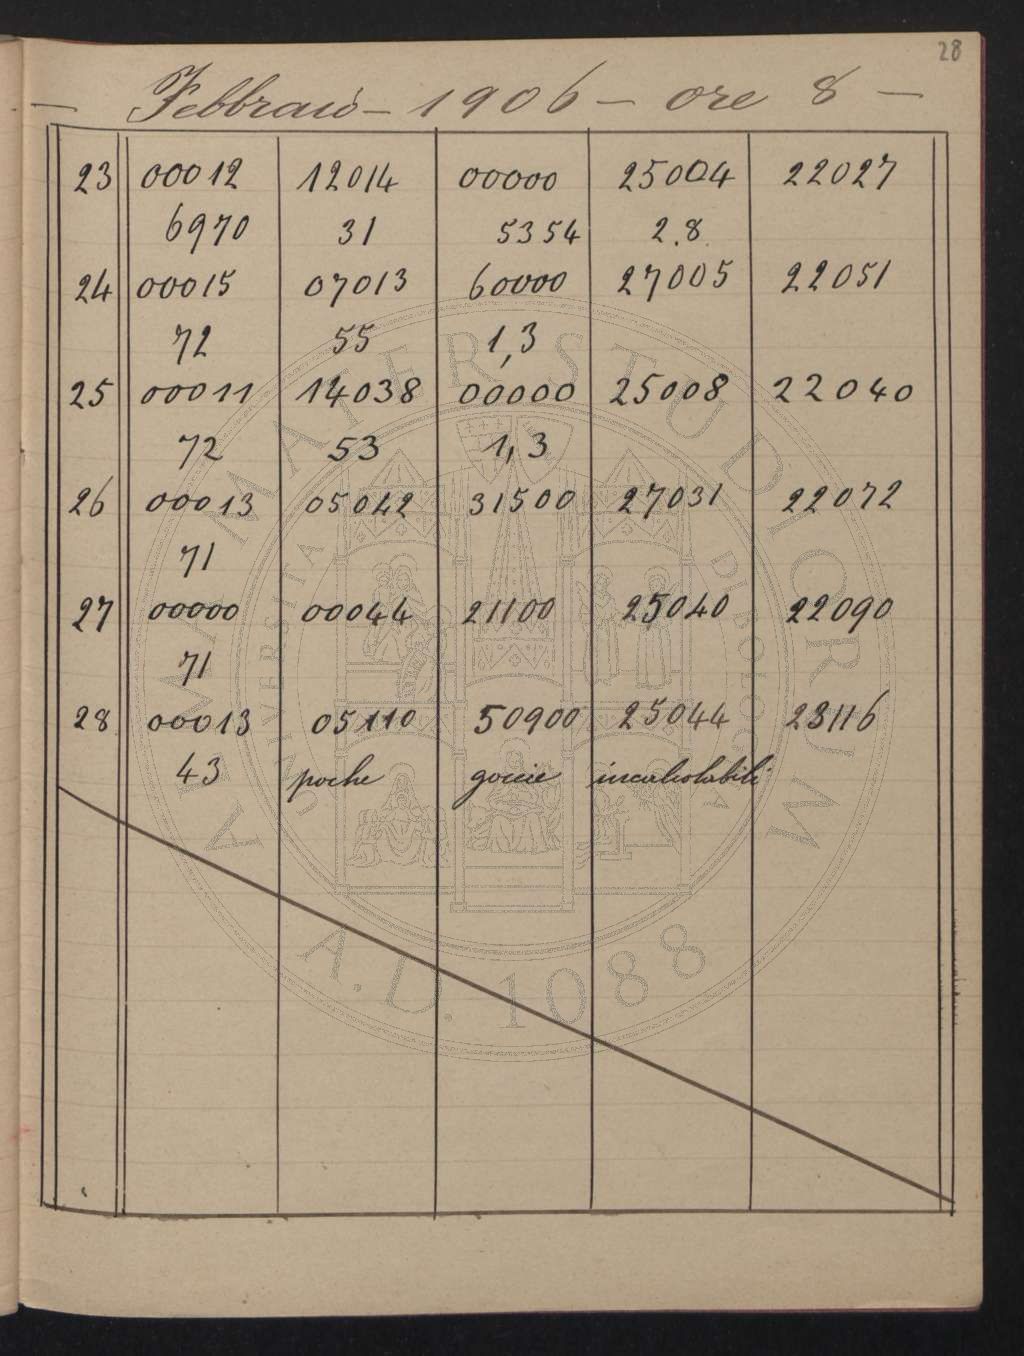 28
— Febbraio — 1906 — ore 8 —
23 00012 12014 00000 25004 22027
6970 31 5354 2.8
24 00015 07013 60000 27005 22051
72 55 1,3
25 00011 14038 00000 25008 22040
72 53 1,3
26 00013 05042 31500 27031 22072
71
27 00000 00044 21100 25040 22090
71
28 00013 05110 50900 25044 23116
43 poche goccie incalcolabili
ALMA MATER STUDIORUM
A.D. 1088
UNIVERSITÀ DI BOLOGNA